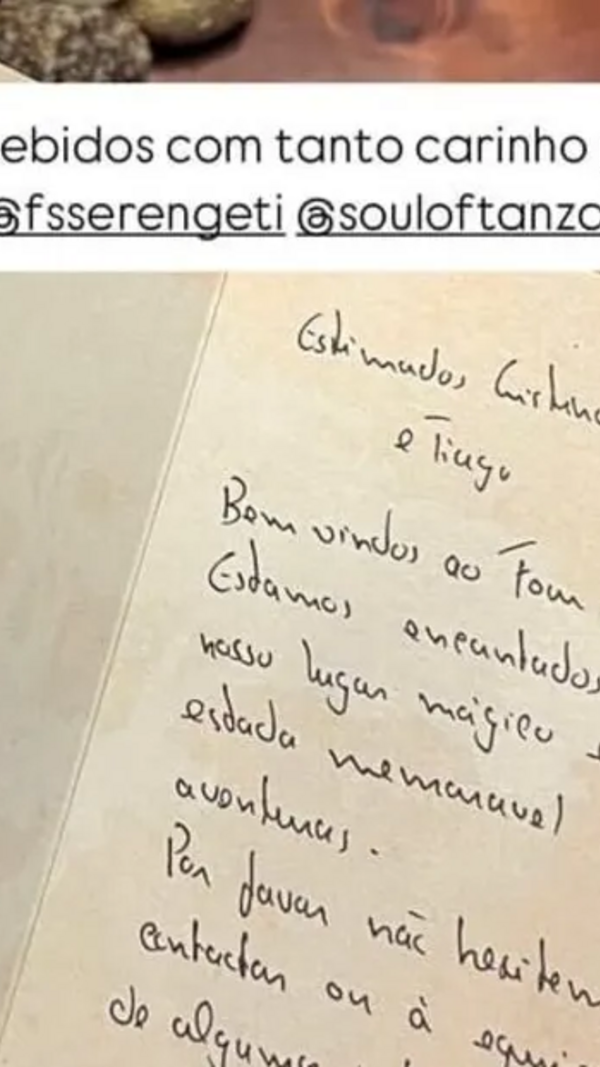 ebidos com tanto carinho
@fsserengeti @souloftanza
Estimados
e Tiago
Bem vindos ao Four
Estamos encantados
nosso lugar mágico
estada memoravel
aventuras.
Por favor não hesitem
contactar ou à equi
de algum